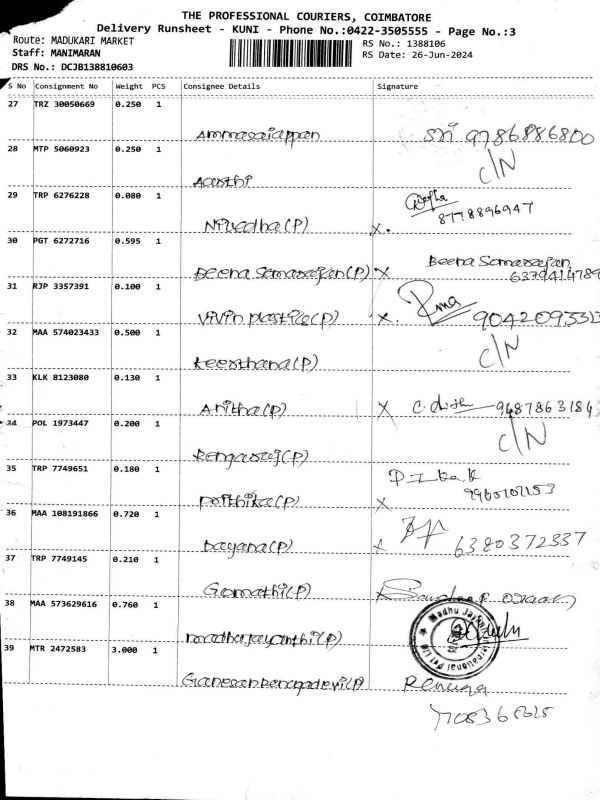 THE PROFESSIONAL COURIERS, COIMBATORE
Delivery Runsheet - KUNI - Phone No.:0422-3505555 - Page No.:3
Route: MADUKARI MARKET
RS No.: 1388106
Staff: MANIMARAN
RS Date: 26-Jun-2024
DRS No.: DCJB138810603
S No Consignment No Weight PCS Consignee Details Signature
27 TRZ 30050669 0.250 1
Ammasaiappan 9786886800
28 MTP 5060923 0.250 1
Aarthi C/N
29 TRP 6276228 0.080 1
Nivedha(P) X. 8778896947
30 PGT 6272716 0.595 1
Beena Somarajan(P) X Beena Somarajan
6379414789
31 RJP 3357391 0.100 1
Vivin plastic(P) X. 9042093313
32 MAA 574023433 0.500 1
Keerthana(P) C/N
33 KLK 8123080 0.130 1
Anitha(P) X 9487863184
34 POL 1973447 0.200 1
Rengaraj(P) C/N
35 TRP 7749651 0.180 1
(P) X
36 MAA 108191866 0.720 1
Dayana(P) X 6380372337
37 TRP 7749145 0.210 1
Gomathi(P)
38 MAA 573629616 0.760 1
madhu jayanthi(P) Madhu Jayanthi International Pvt Ltd
39 MTR 2472583 3.000 1
Ganesan Renugadevi(P) Renuga